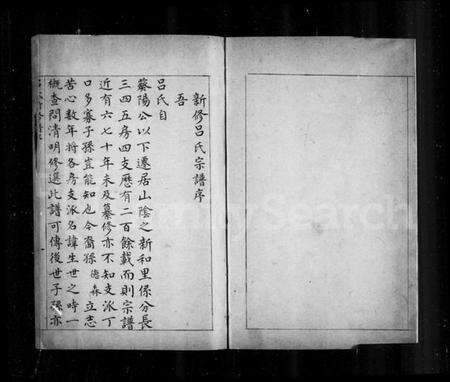 新修呂氏宗譜序
吾
呂氏自
蔡陽公以下遷居山陰之新和里係分長
三四五房四支歷有二百餘載而則宗譜
近有六七十年未及纂修亦不知支派丁
口多寡子孫豈能知也今裔孫德森立志
苦心数年將各房支派名諱生世之時一
概查問清明修進此譜可傳後世子孫亦